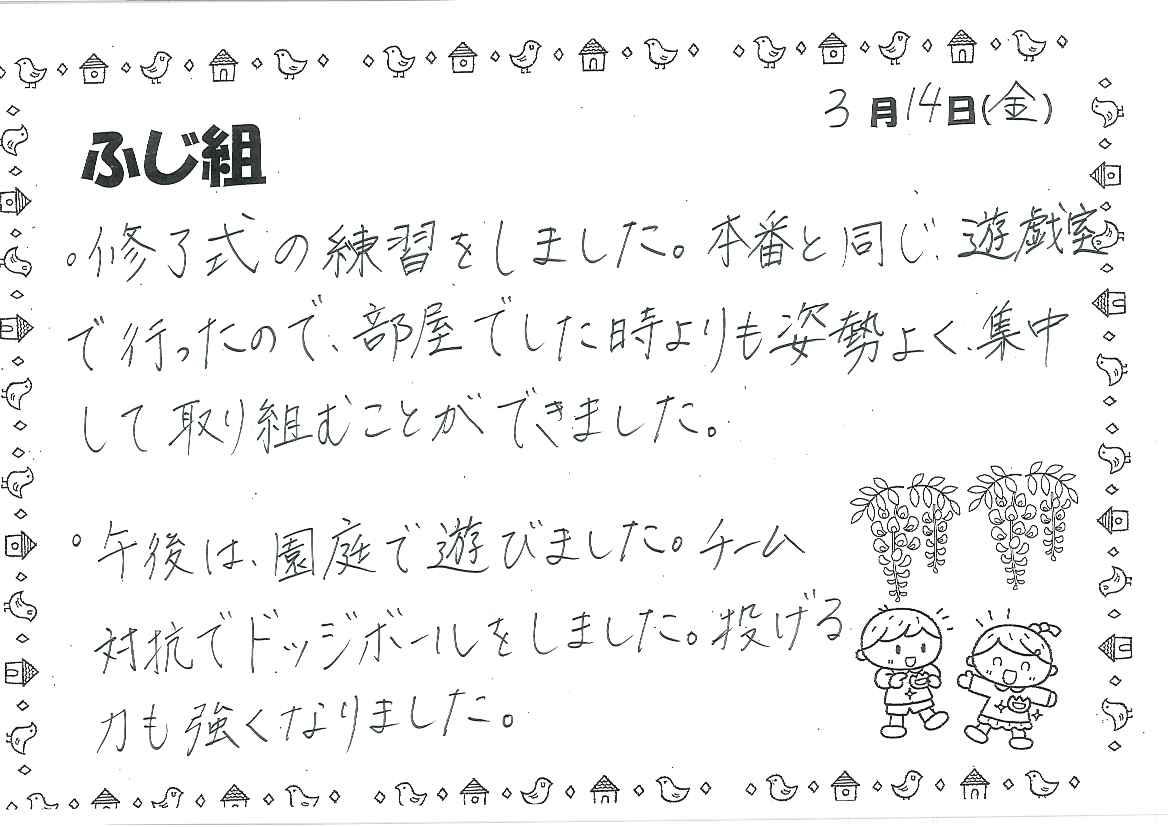 3月14日(金)
ふじ組
。修了式の練習をしました。本番と同じ、遊戯室
で行ったので、部屋でした時よりも姿勢よく、集中
して取り組むことができました。
。午後は、園庭で遊びました。チーム
対抗でドッジボールをしました。投げる
力も強くなりました。